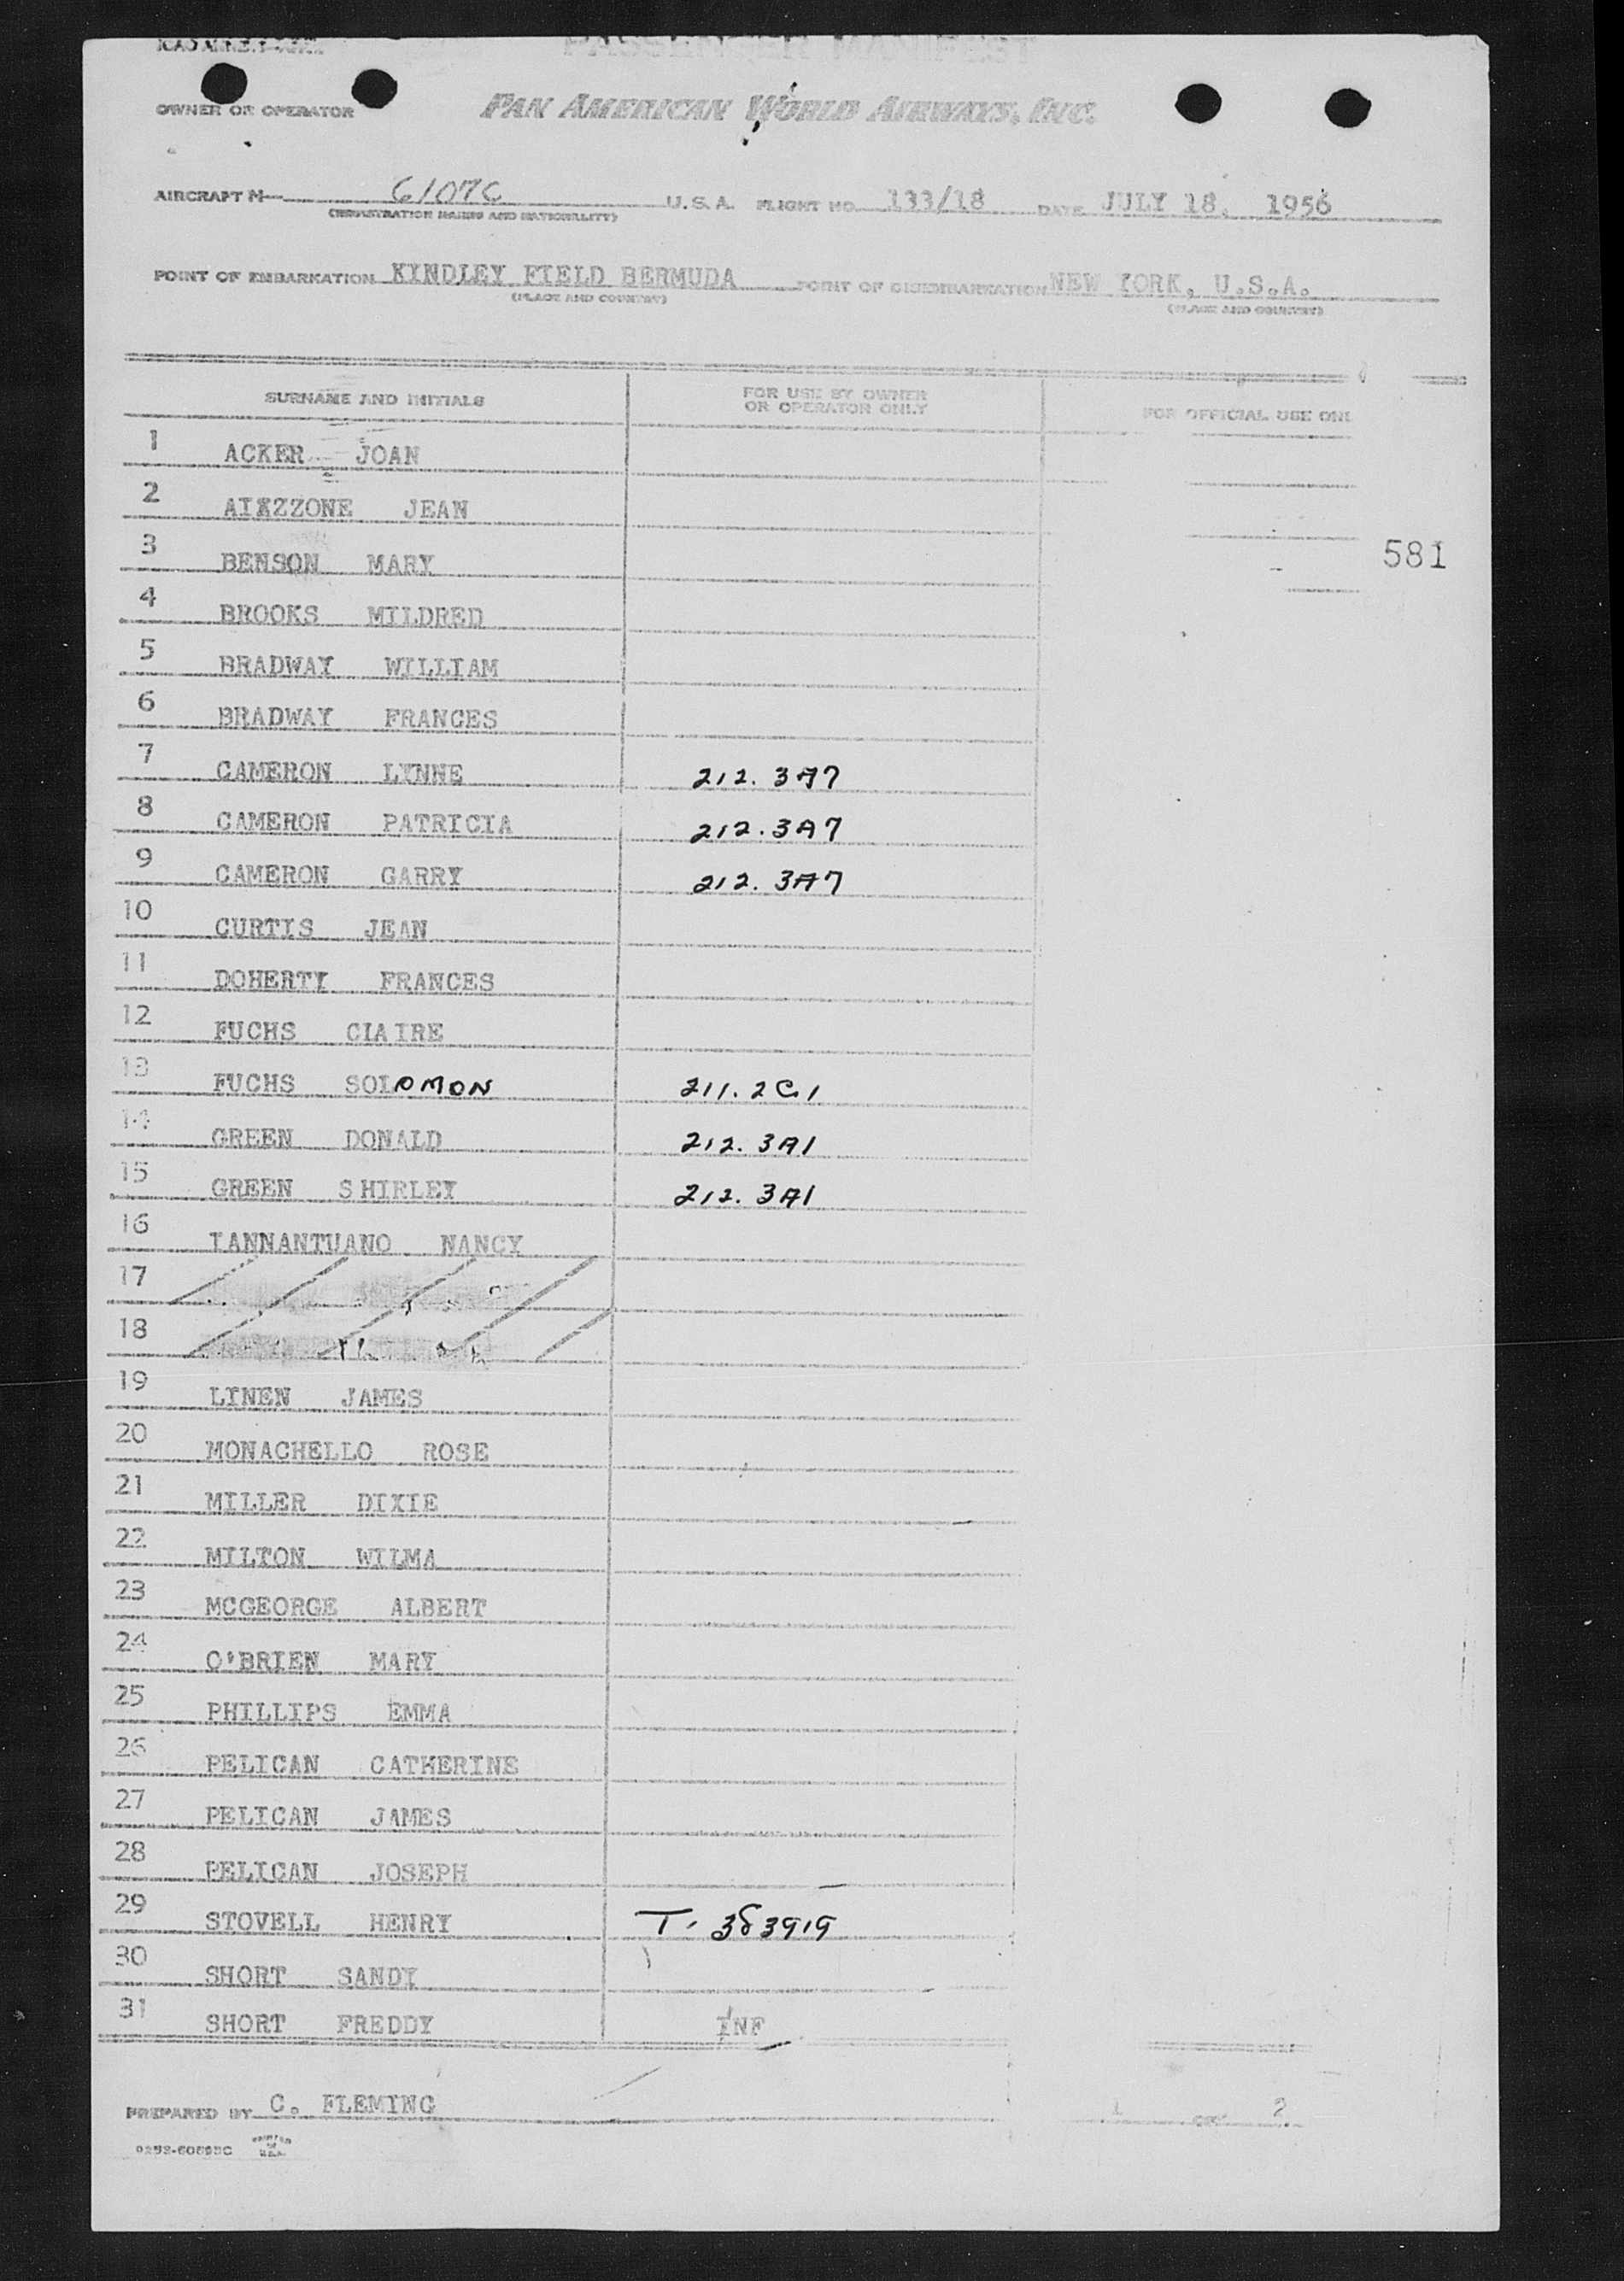 ICAO ANNEX 9
OWNER OR OPERATOR PAN AMERICAN WORLD AIRWAYS, INC.
AIRCRAFT N 6107C U.S.A. FLIGHT NO. 133/18 DATE JULY 18, 1956
(REGISTRATION MARKS AND NATIONALITY)
POINT OF EMBARKATION KINDLEY FIELD BERMUDA POINT OF DISEMBARKATION NEW YORK, U.S.A.
(PLACE AND COUNTRY) (PLACE AND COUNTRY)
SURNAME AND INITIALS FOR USE BY OWNER OR OPERATOR ONLY FOR OFFICIAL USE ONL
1 ACKER JOAN
2 AIXZZONE JEAN
3 BENSON MARY 581
4 BROOKS MILDRED
5 BRADWAY WILLIAM
6 BRADWAY FRANCES
7 CAMERON LYNNE 212.3A7
8 CAMERON PATRICIA 212.3A7
9 CAMERON GARRY 212.3A7
10 CURTIS JEAN
11 DOHERTY FRANCES
12 FUCHS CLAIRE
13 FUCHS SOLOMON 211.2C1
14 GREEN DONALD 212.3A1
15 GREEN SHIRLEY 212.3A1
16 IANNANTUANO NANCY
17
18
19 LINEN JAMES
20 MONACHELLO ROSE
21 MILLER DIXIE
22 MILTON WILMA
23 MCGEORGE ALBERT
24 O'BRIEN MARY
25 PHILLIPS EMMA
26 PELICAN CATHERINE
27 PELICAN JAMES
28 PELICAN JOSEPH
29 STOVELL HENRY T. 383919
30 SHORT SANDY
31 SHORT FREDDY INF
PREPARED BY C. FLEMING 1 OF 2
PRINTED IN U.S.A.